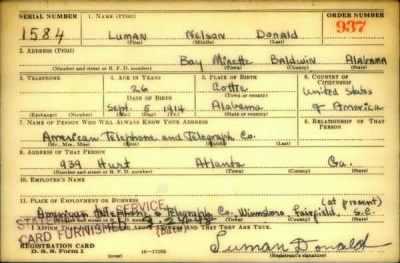 SERIAL NUMBER 1. NAME (Print) ORDER NUMBER
1584 Luman Nelson Donald 937
(First) (Middle) (Last)
2. ADDRESS (Print)
Bay Minette Baldwin Alabama
(Number and street or R. F. D. number) (Town) (County) (State)
3. TELEPHONE 4. AGE IN YEARS 5. PLACE OF BIRTH 6. COUNTRY OF CITIZENSHIP
26 Gottie United States
DATE OF BIRTH (Town or county)
Sept 5 1914 Alabama of America
(Exchange) (Number) (Mo.) (Day) (Yr.) (State or country)
7. NAME OF PERSON WHO WILL ALWAYS KNOW YOUR ADDRESS 8. RELATIONSHIP OF THAT PERSON
American Telephone and Telegraph Co.
(Mr., Mrs., Miss) (First) (Middle) (Last)
9. ADDRESS OF THAT PERSON
939 Hurt Atlanta Ga.
(Number and street or R. F. D. number) (Town) (County) (State)
10. EMPLOYER'S NAME
11. PLACE OF EMPLOYMENT OR BUSINESS (at present)
American Telephone & Telegraph Co., Winnsboro, Fairfield, S.C.
SERVICE
I AFFIRM THAT AND THAT THEY ARE TRUE.
CARD FURNISHED (Date)
REGISTRATION CARD
D. S. S. Form 1 16—17105 Luman Donald